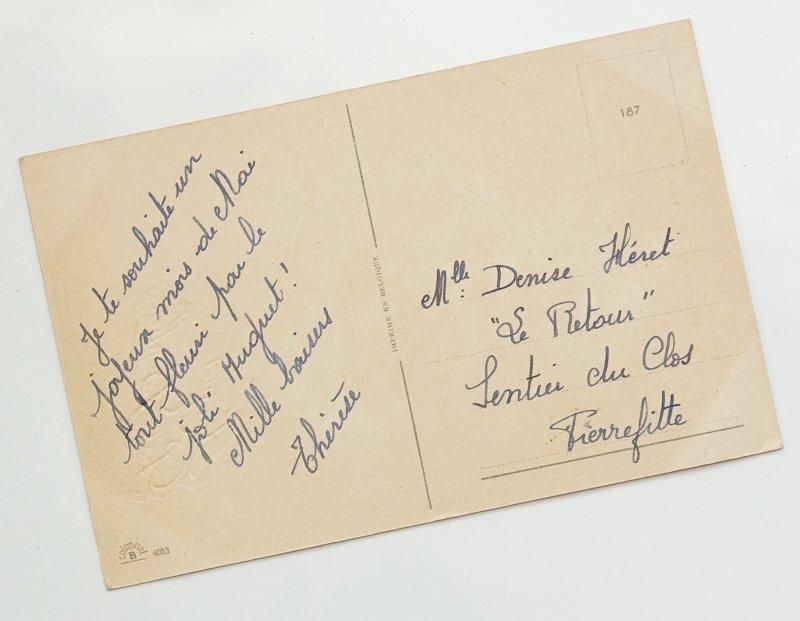 Je te souhaite un
joyeux mois de Mai
tout fleuri par le
joli Muguet!
Mille baisers
Thérèse
IMPRIMÉ EN BELGIQUE
187
Mlle: Denise Héret
"Le Retour"
Sentier du Clos
Pierrefitte
4053